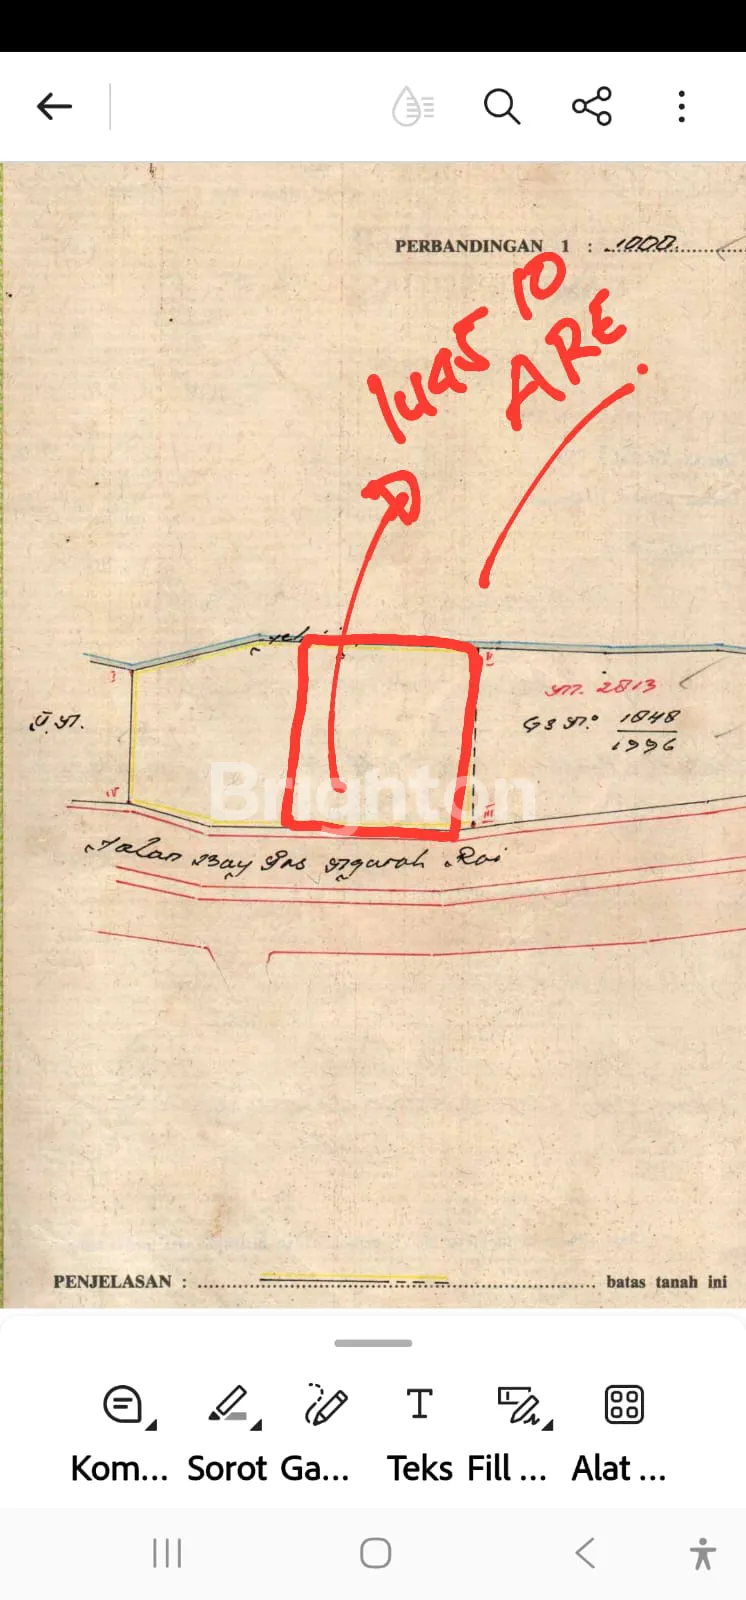 PERBANDINGAN 1 : 1000
luas 10
ARE
I
II
M. 2813
GS No. 1848
1996
IV
III
Brighton
Jalan Bay Pas Ngurah Rai
PENJELASAN : batas tanah ini
Kom...
Sorot
Ga...
Teks
Fill ...
Alat ...